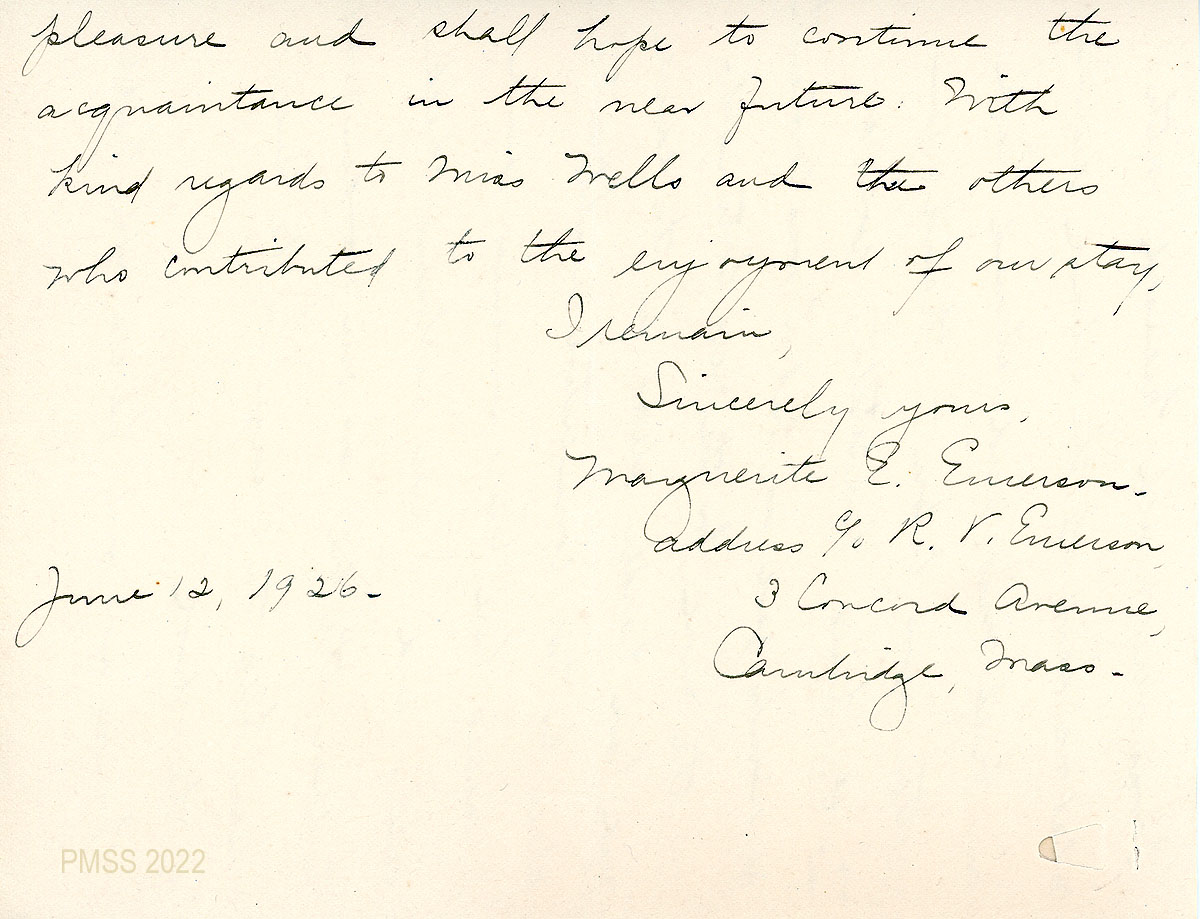 pleasure and shall hope to continue the
acquaintance in the near future. With
kind regards to Miss Wells and the others
who contributed to the enjoyment of our stay,
I remain,
Sincerely yours,
Marguerite E. Emerson.
address c/o R. V. Emerson,
June 12, 1926.
3 Concord Avenue,
Cambridge, Mass.
PMSS 2022